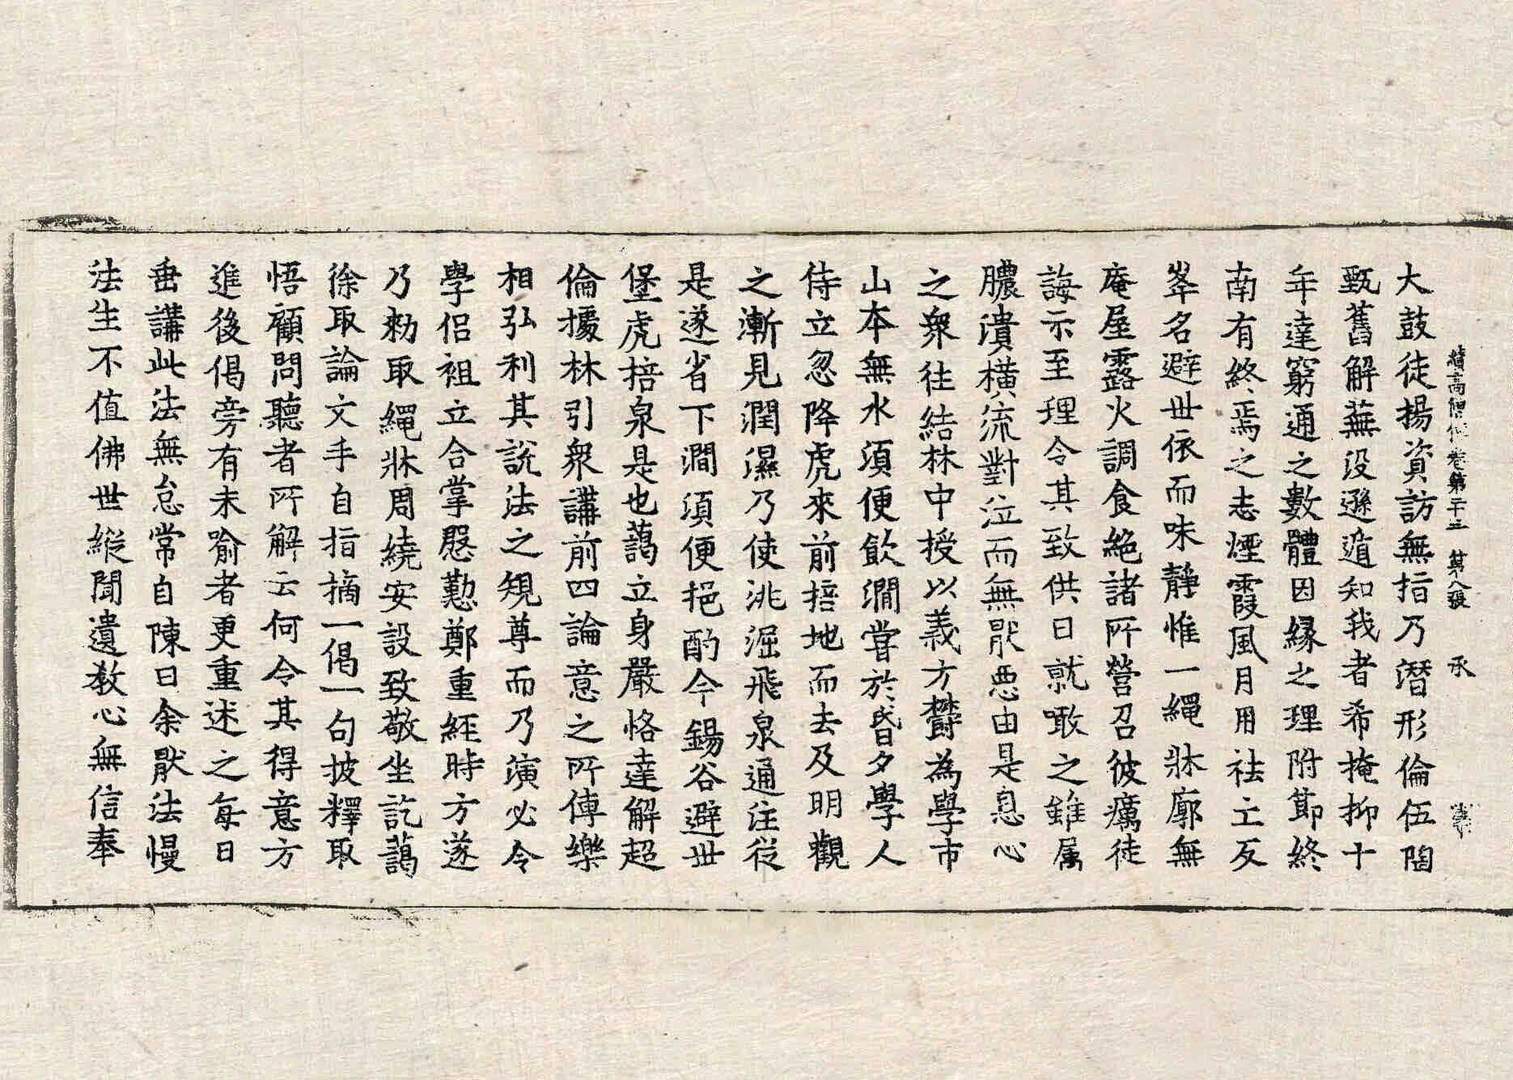 大鼓徒揚資訪無指乃潛形倫伍陶
甄舊解蕪没遜遁知我者希掩抑十
年達窮通之數體因縁之理附節終
南有終焉之志煙霞風月用袪亡反
峯名避世依而味靜惟一繩牀廓無
庵屋露火調食絶諸所營召彼癘徒
誨示至理令其致供日就噉之雖属
膿潰橫流對泣而無猒惡由是息心
之衆往結林中授以義方欝為學市
山本無水須便飲澗甞於昏夕學人
侍立忽降虎來前掊地而去及明觀
之漸見潤濕乃使洮淈飛泉通注從
是遂省下澗須便挹酌今錫谷避世
堡虎掊泉是也藹立身嚴恪達解超
倫援林引衆講前四論意之所傳樂
相弘利其說法之規尊而乃演必令
學侣袒立合掌慇懃鄭重經時方遂
乃勑取繩牀周繞安設致敬坐訖藹
徐取論文手自指摘一偈一句披釋取
悟顧問聽者所解云何令其得意方
進後偈旁有未喻者更重述之每日
垂講此法無怠常自陳曰余猒法慢
法生不值佛世縱聞遺教心無信奉
續高僧傳卷第二十三 第八張 承